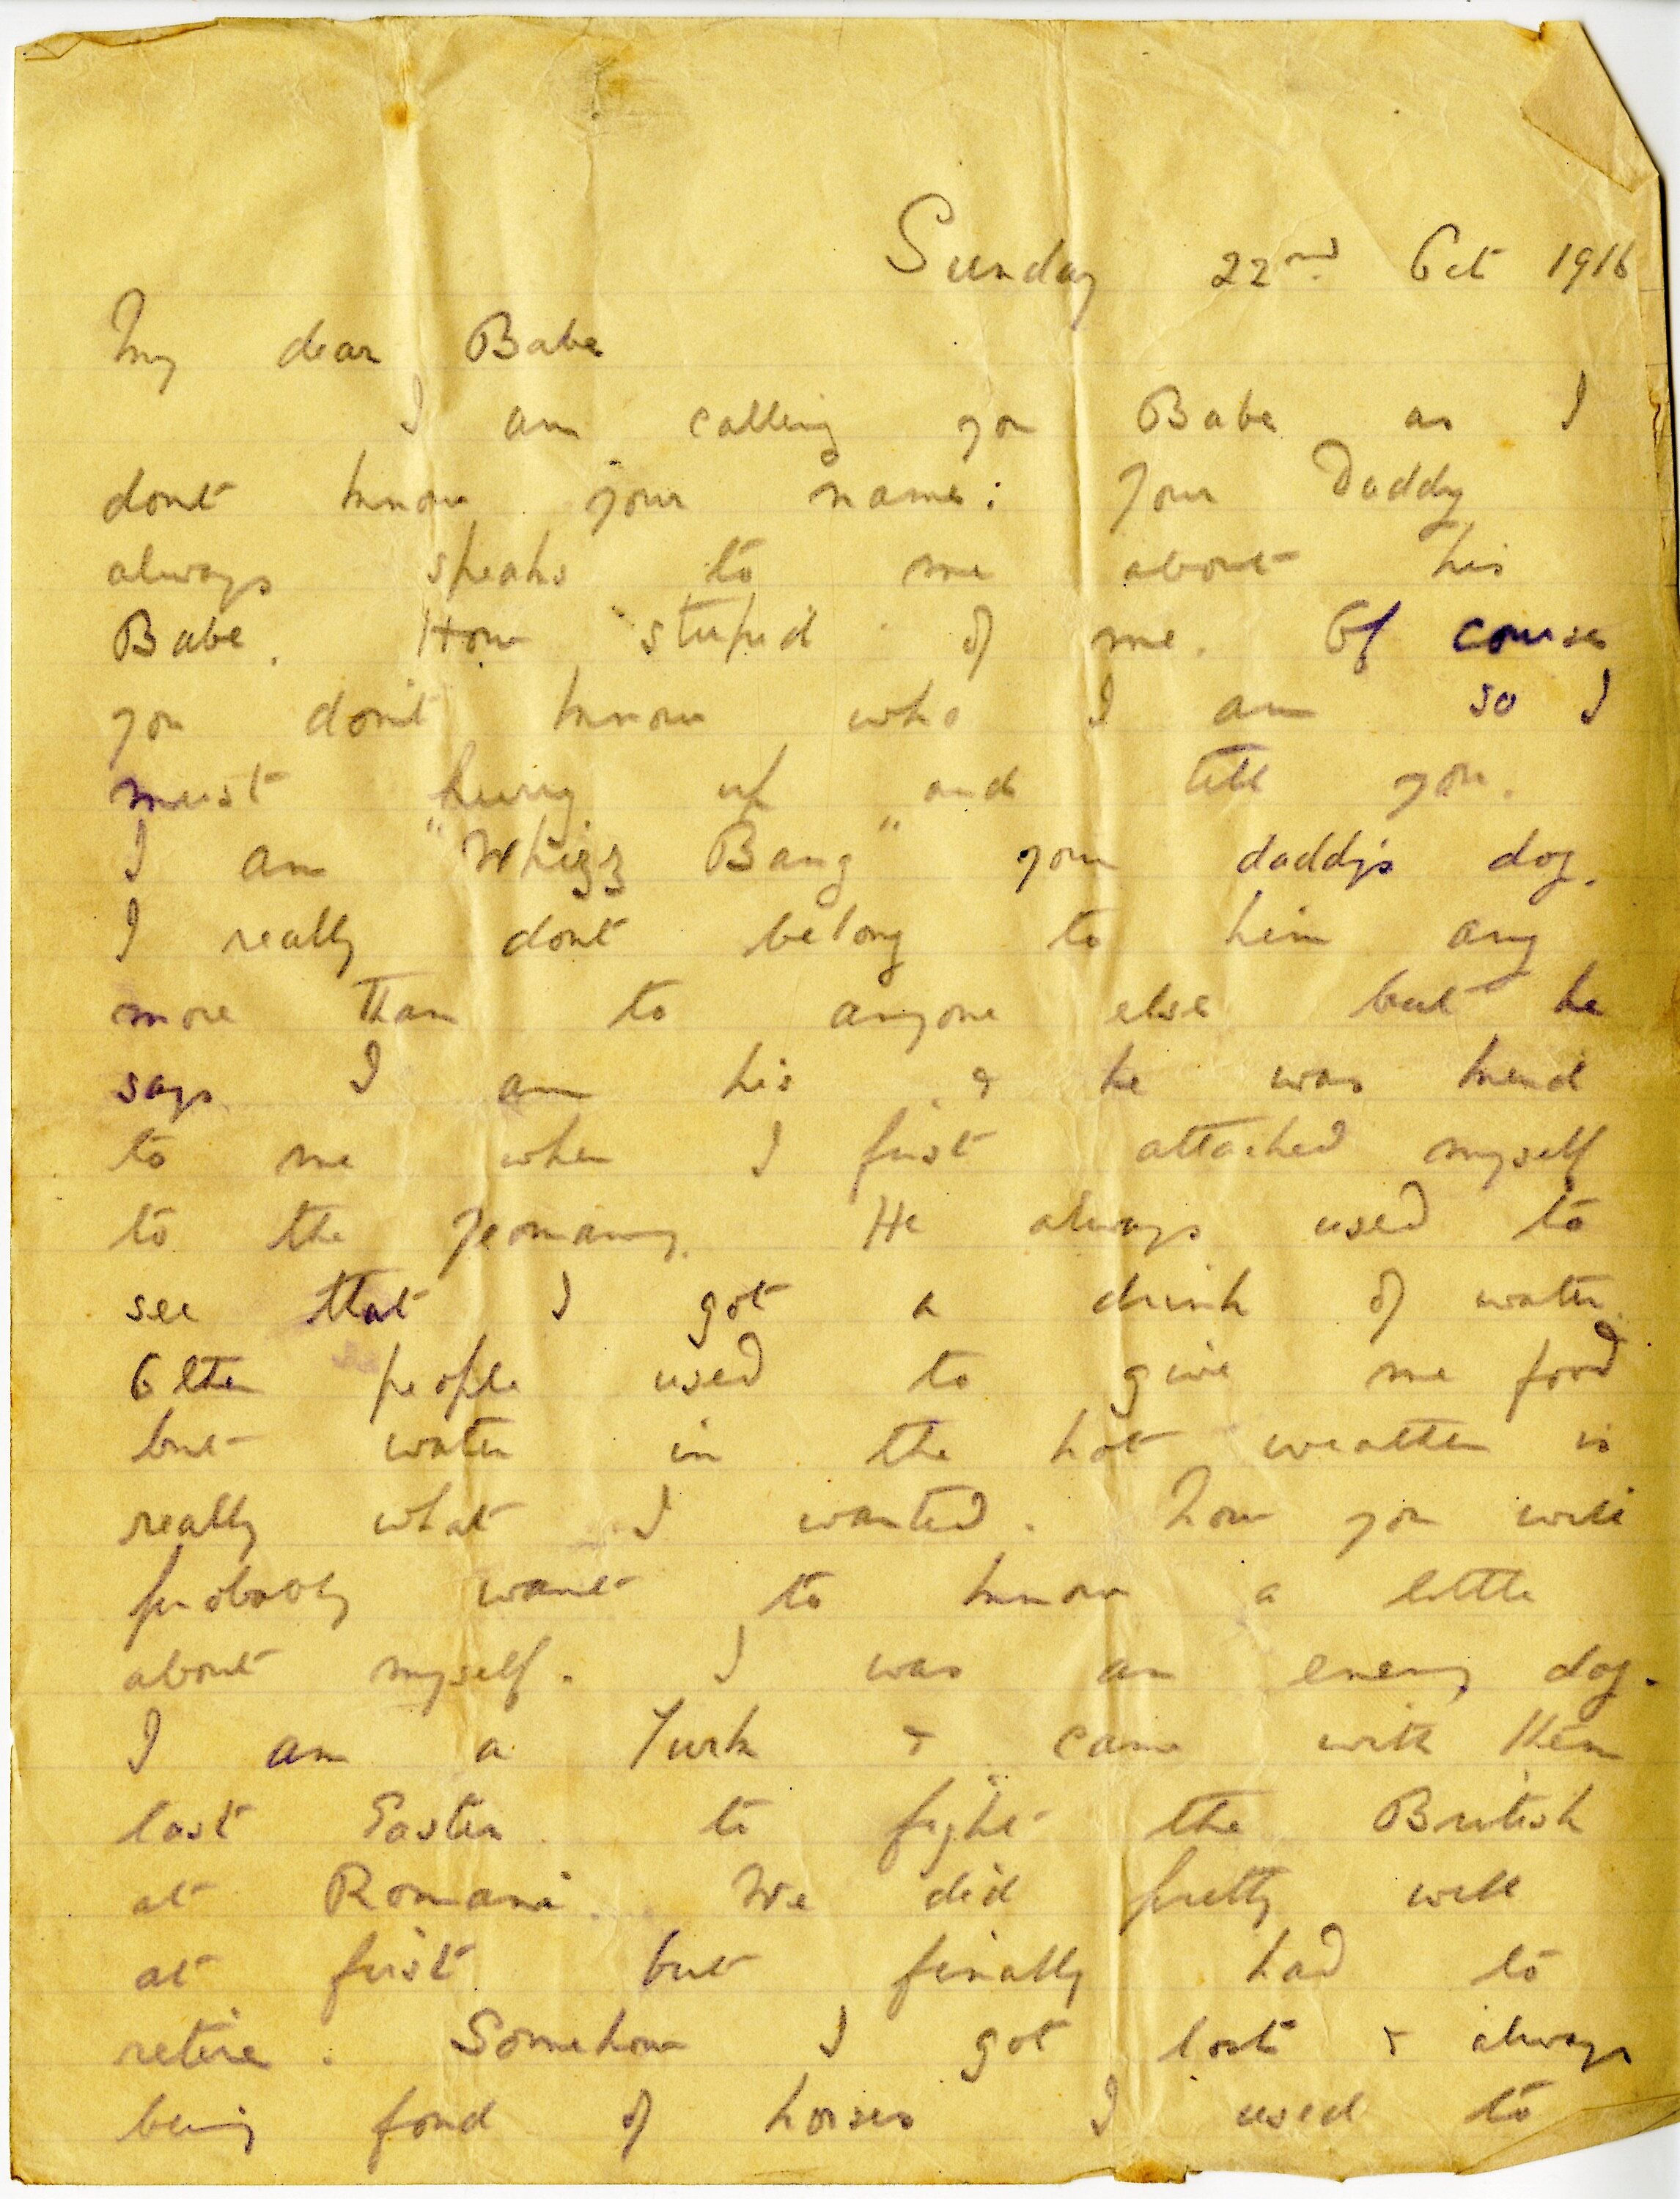 Sunday 22nd Oct 1916
My dear Babe
I am calling you Babe as I
dont know your name: your Daddy
always speaks to me about his
Babe. How stupid of me. Of course
you don't know who I am so I
must hurry up and tell you.
I am "Whizz Bang" your daddy's dog.
I really dont belong to him any
more than to anyone else but he
says I am his & he was kind
to me when I first attached myself
to the Yeomanry. He always used to
see that I got a drink of water.
Other people used to give me food
but water in the hot weather is
really what I wanted. Now you will
probably want to know a little
about myself. I was an enemy dog.
I am a Turk & came with them
last Easter to fight the British
at Romani. We did pretty well
at first but finally had to
retire. Somehow I got lost & always
being fond of horses I used to